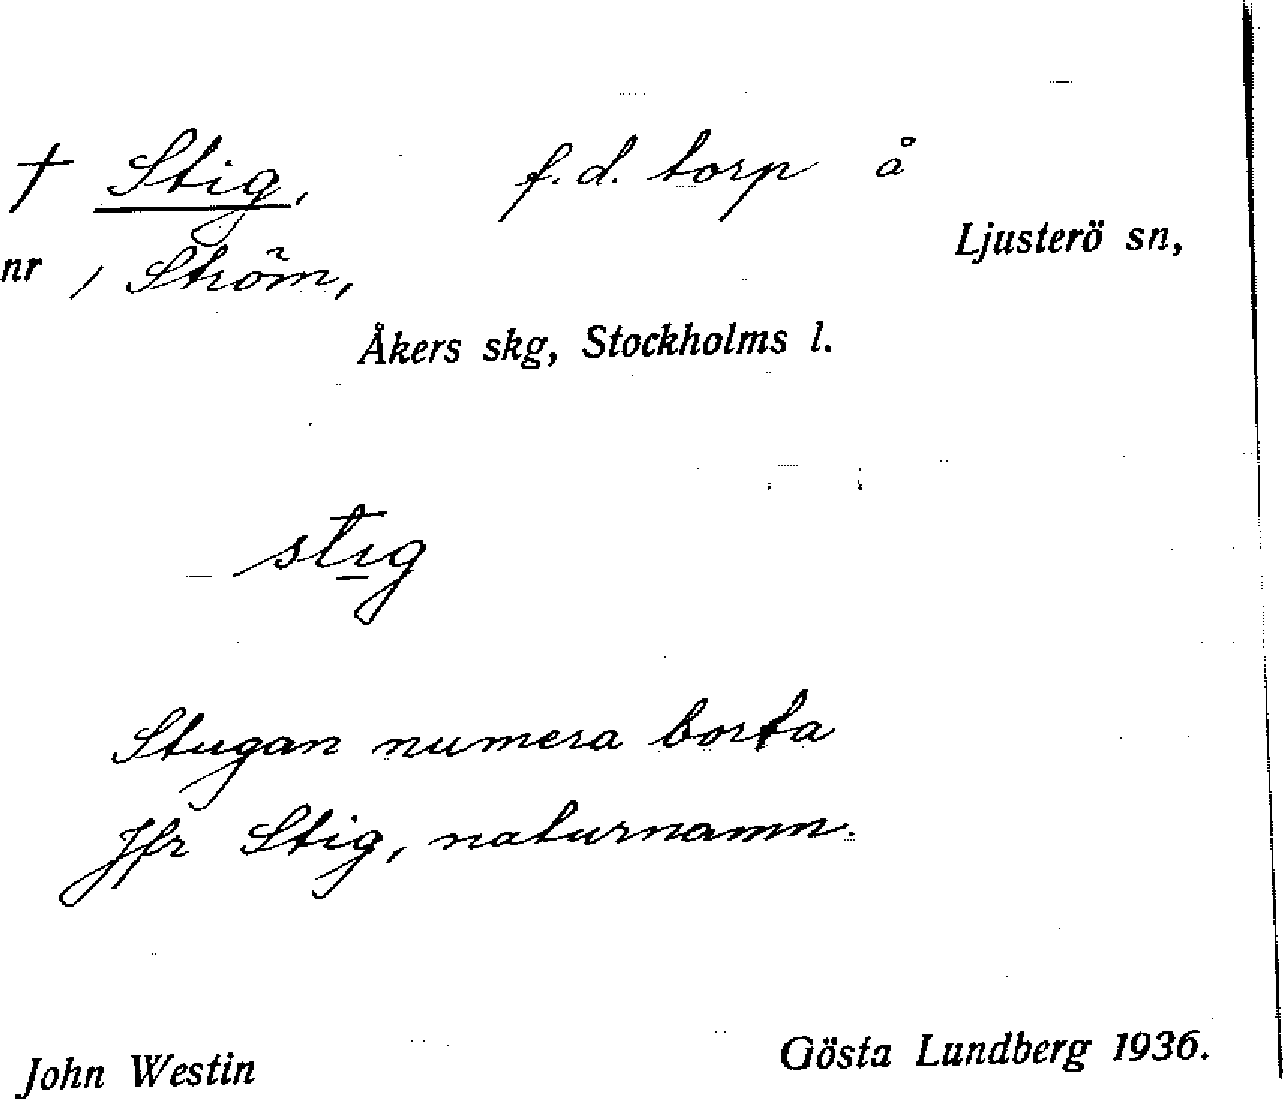 † Stig, f.d. torp å
Ljusterö sn,
nr 1 Ström,
Åkers skg, Stockholms l.
stig
Stugan numera borta
Jfr Stig, naturnamn.
John Westin Gösta Lundberg 1936.